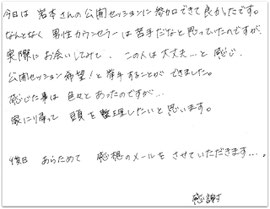 今日は 岩本さんの公開セッションに参加できて良かったです。
なんとなく 男性カウンセラーは苦手だなと思っていたのですが、
実際にお会いしてみて、この人は大丈夫…と感じ、
公開セッション希望!と挙手することができました。
感じた事は色々とあったのですが…
家に帰って 頭を整理したいと思います。
後日 あらためて 感想のメールを させていただきます…。
感謝